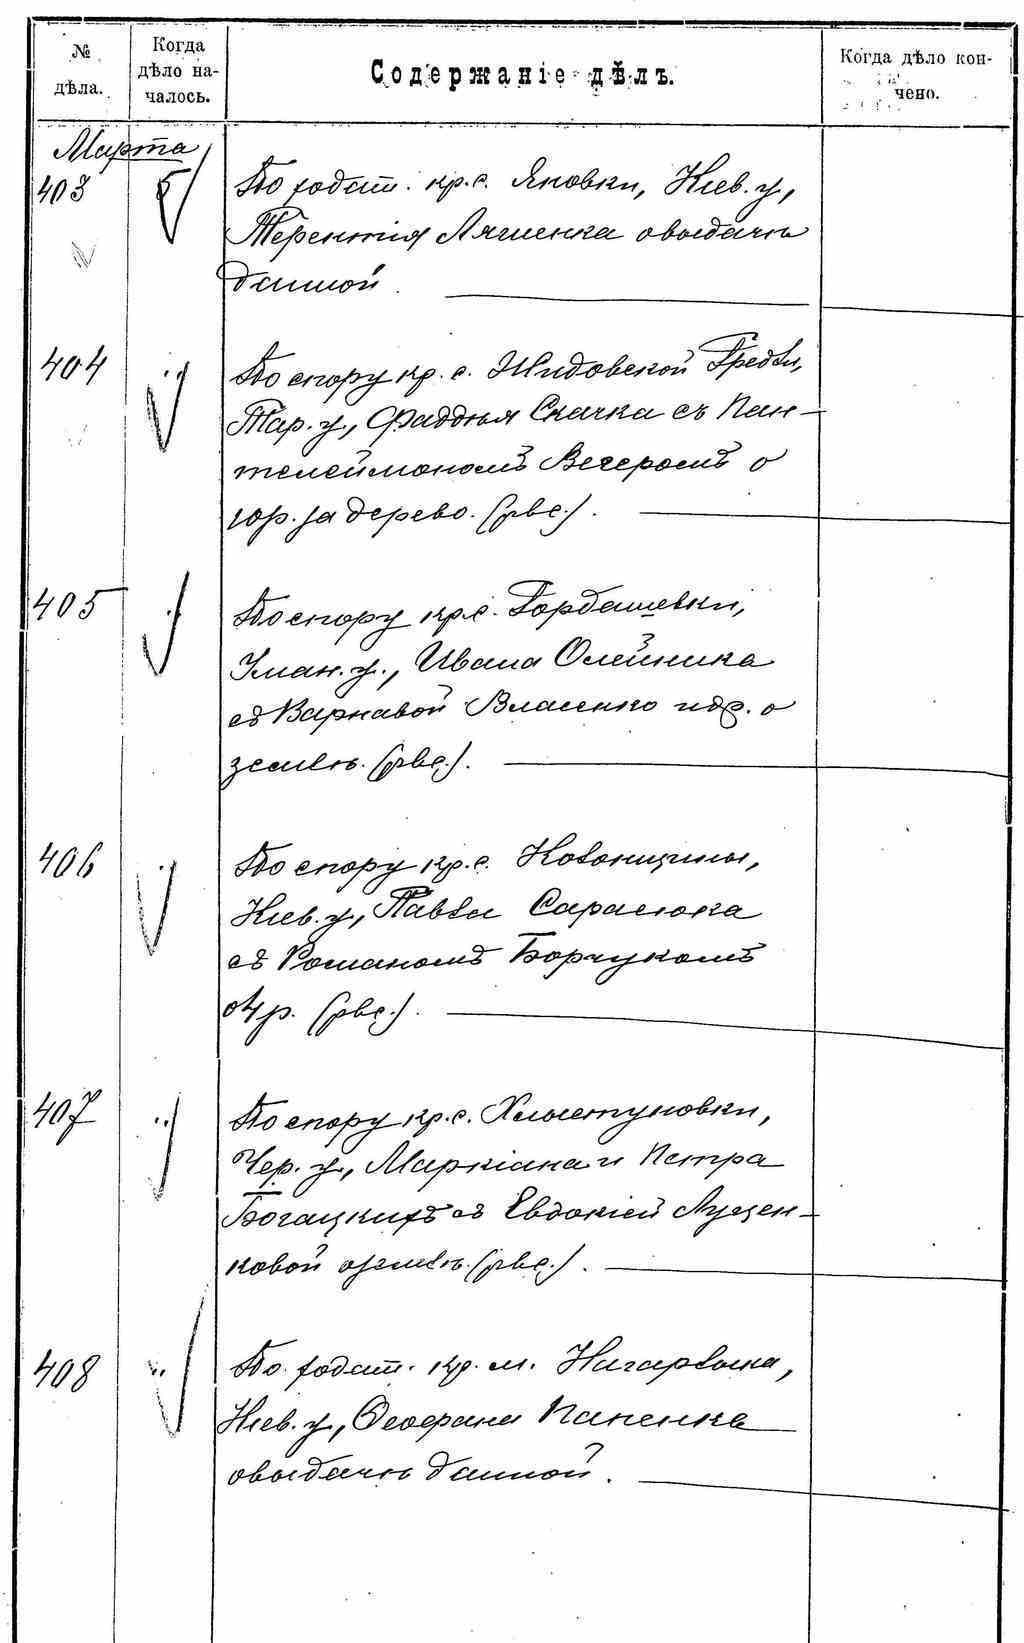 № дѣла.
Когда дѣло началось.
Содержаніе дѣлъ.
Когда дѣло кончено.
Марта
403 5 По ходат. кр. с. Яновки, Кіев. у.,
Терентія Ляшенка о выдачѣ
данной.
404 " По спору кр. с. Жидовской Гребли,
Тар. у., Фаддѣя Скачка съ Пан-
телеймономъ Вечеромъ о
за дерево. (рвс.).
405 " По спору кр. с. Горбашевки,
Уман. у., Ивана Олейника
съ Варнавой Власенко и др. о
землѣ. (рвс.).
406 " По спору кр. с. Ковонщины,
Кіев. у., Павла Сарасюка
съ Романомъ Борчукомъ
(рвс.).
407 " По спору кр. с. Хлыстуновки,
Чер. у., Маркіана и Петра
Богацкихъ съ Евдокіей Луцен-
ковой о землѣ. (рвс.).
408 " По ходат. кр. м.
Кіев. у., Папенка
о выдачѣ данной.